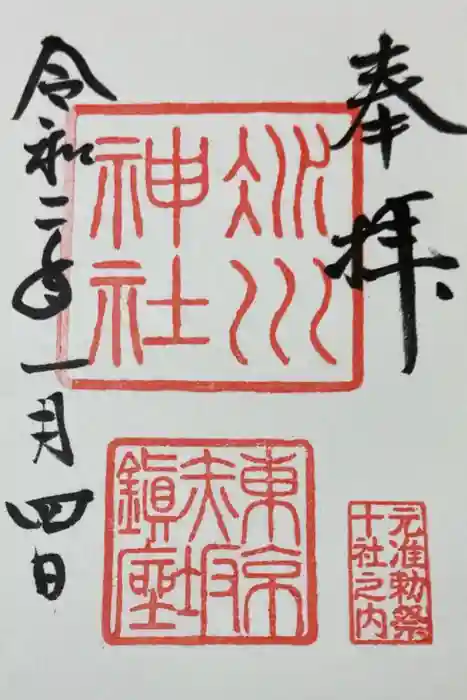 奉拝
氷川
神社
東京
赤坂
鎮座
元准勅祭
十社之内
令和二年一月四日